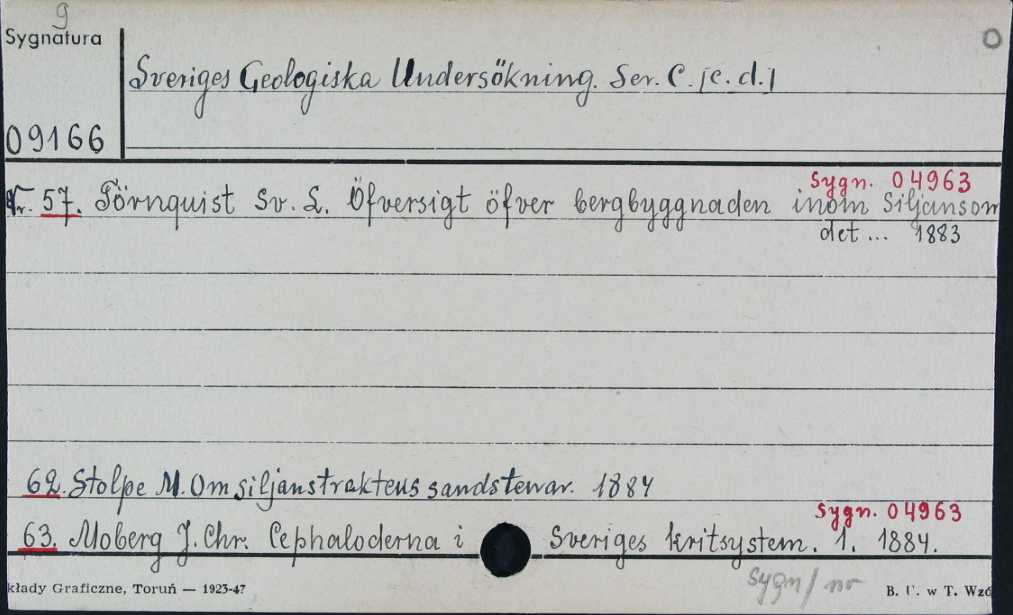 9
Sygnatura
0
Sveriges Geologiska Undersökning. Ser. C. [c. d.]
09166
Sygn. 04963
Nr. 57. Törnquist Sv. L. Öfversigt öfver bergbyggnaden inom Siljansom
det ... 1883
62. Stolpe M. Om siljanstrakteus sandstenar. 1884
Sygn. 04963
63. Moberg J. Chr. Cephaloderna i Sveriges kritsystem. 1. 1884.
sygn/ nr
kłady Graficzne, Toruń — 1925-47
B. U. w T. Wzó